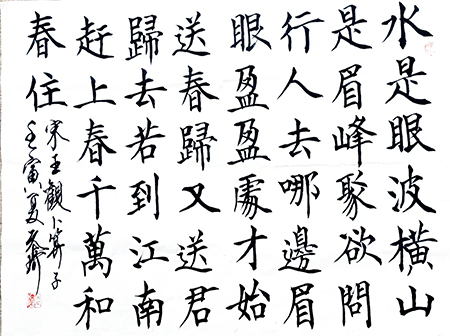 水是眼波橫山
是眉峰聚欲問
行人去哪邊眉
眼盈盈處才始
送春歸又送君
歸去若到江南
赶上春千萬和
春住
宋王觀卜算子
壬寅夏